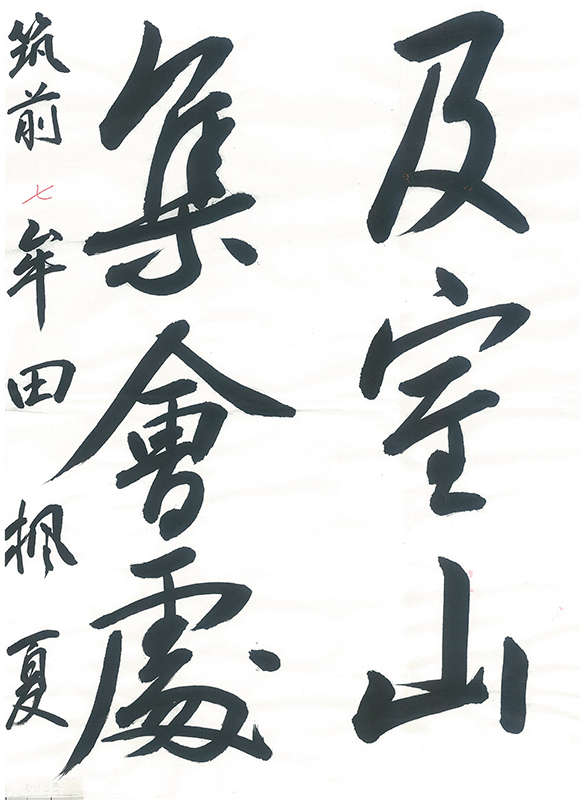 及室山
集會處
筑前 七 牟田 楓夏